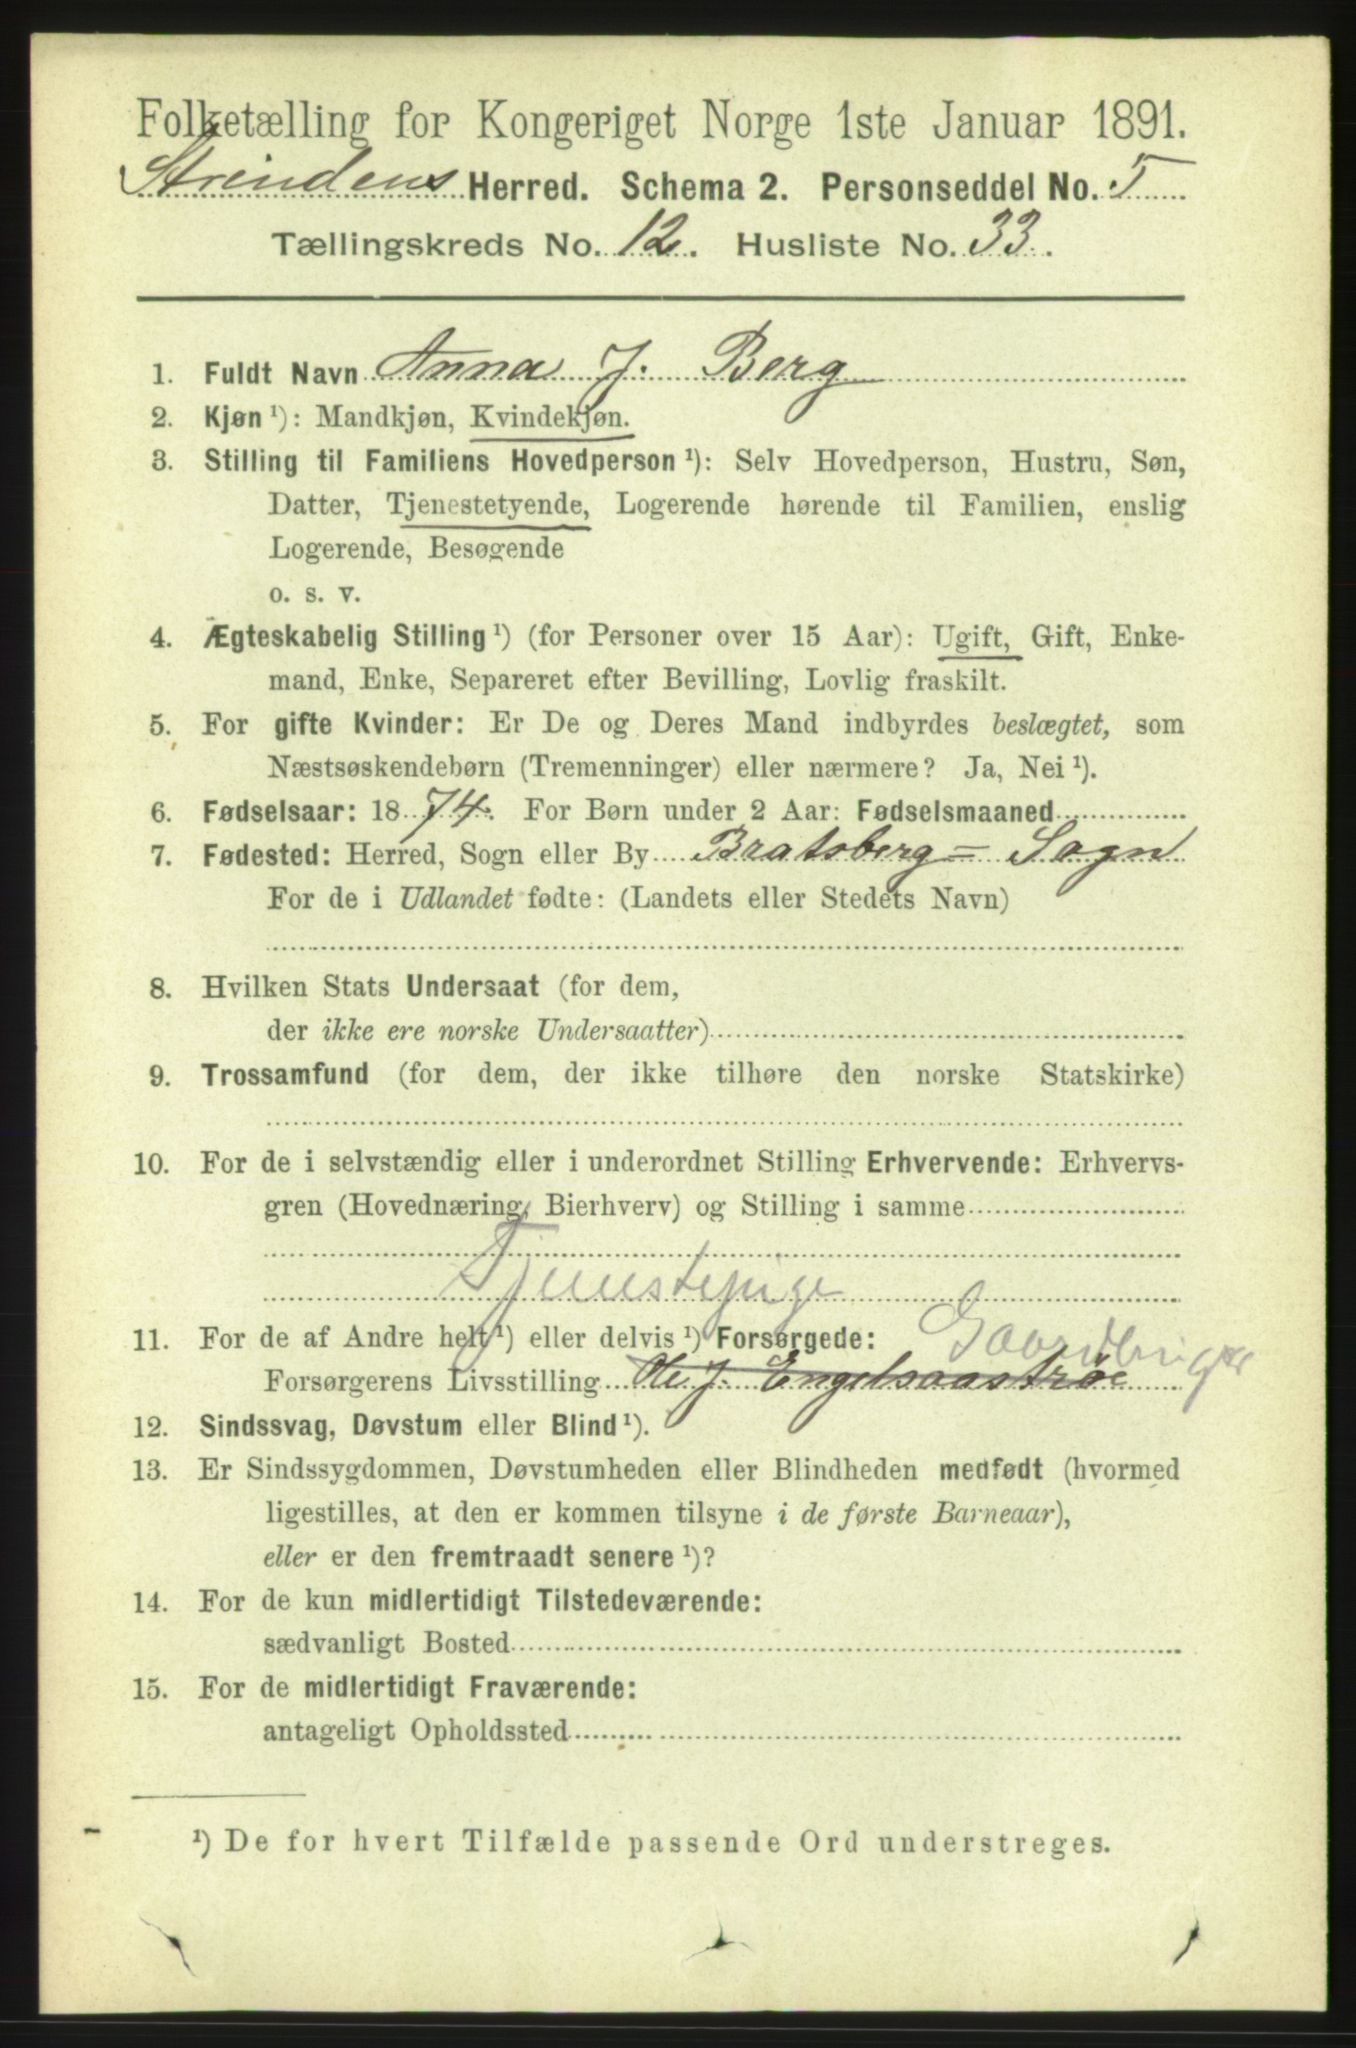 Folketælling for Kongeriget Norge 1ste Januar 1891.
Strindens Herred. Schema 2. Personseddel No. 5
Tællingskreds No. 12. Husliste No. 33.
1. Fuldt Navn Anna J. Berg
2. Kjøn ¹): Mandkjøn, Kvindekjøn.
3. Stilling til Familiens Hovedperson ¹): Selv Hovedperson, Hustru, Søn,
Datter, Tjenestetyende, Logerende hørende til Familien, enslig
Logerende, Besøgende
o. s. v.
4. Ægteskabelig Stilling ¹) (for Personer over 15 Aar): Ugift, Gift, Enke-
mand, Enke, Separeret efter Bevilling, Lovlig fraskilt.
5. For gifte Kvinder: Er De og Deres Mand indbyrdes beslægtet, som
Næstsøskendebørn (Tremenninger) eller nærmere? Ja, Nei ¹).
6. Fødselsaar: 1874. For Børn under 2 Aar: Fødselsmaaned
7. Fødested: Herred, Sogn eller By Bratsberg - Sogn
For de i Udlandet fødte: (Landets eller Stedets Navn)
8. Hvilken Stats Undersaat (for dem,
der ikke ere norske Undersaatter)
9. Trossamfund (for dem, der ikke tilhøre den norske Statskirke)
10. For de i selvstændig eller i underordnet Stilling Erhvervende: Erhvervs-
gren (Hovednæring, Bierhverv) og Stilling i samme
Tjenestepige
11. For de af Andre helt ¹) eller delvis ¹) Forsørgede: Gaardbruger
Forsørgerens Livsstilling Ole J. Engelsaastrøe
12. Sindssvag, Døvstum eller Blind ¹).
13. Er Sindssygdommen, Døvstumheden eller Blindheden medfødt (hvormed
ligestilles, at den er kommen tilsyne i de første Barneaar),
eller er den fremtraadt senere ¹)?
14. For de kun midlertidigt Tilstedeværende:
sædvanligt Bosted
15. For de midlertidigt Fraværende:
antageligt Opholdssted
¹) De for hvert Tilfælde passende Ord understreges.